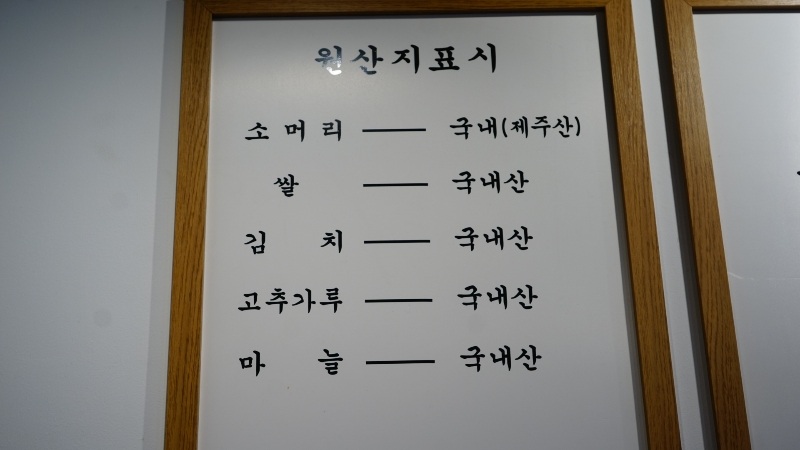 원산지표시
소머리 — 국내(제주산)
쌀 — 국내산
김치 — 국내산
고추가루 — 국내산
마늘 — 국내산